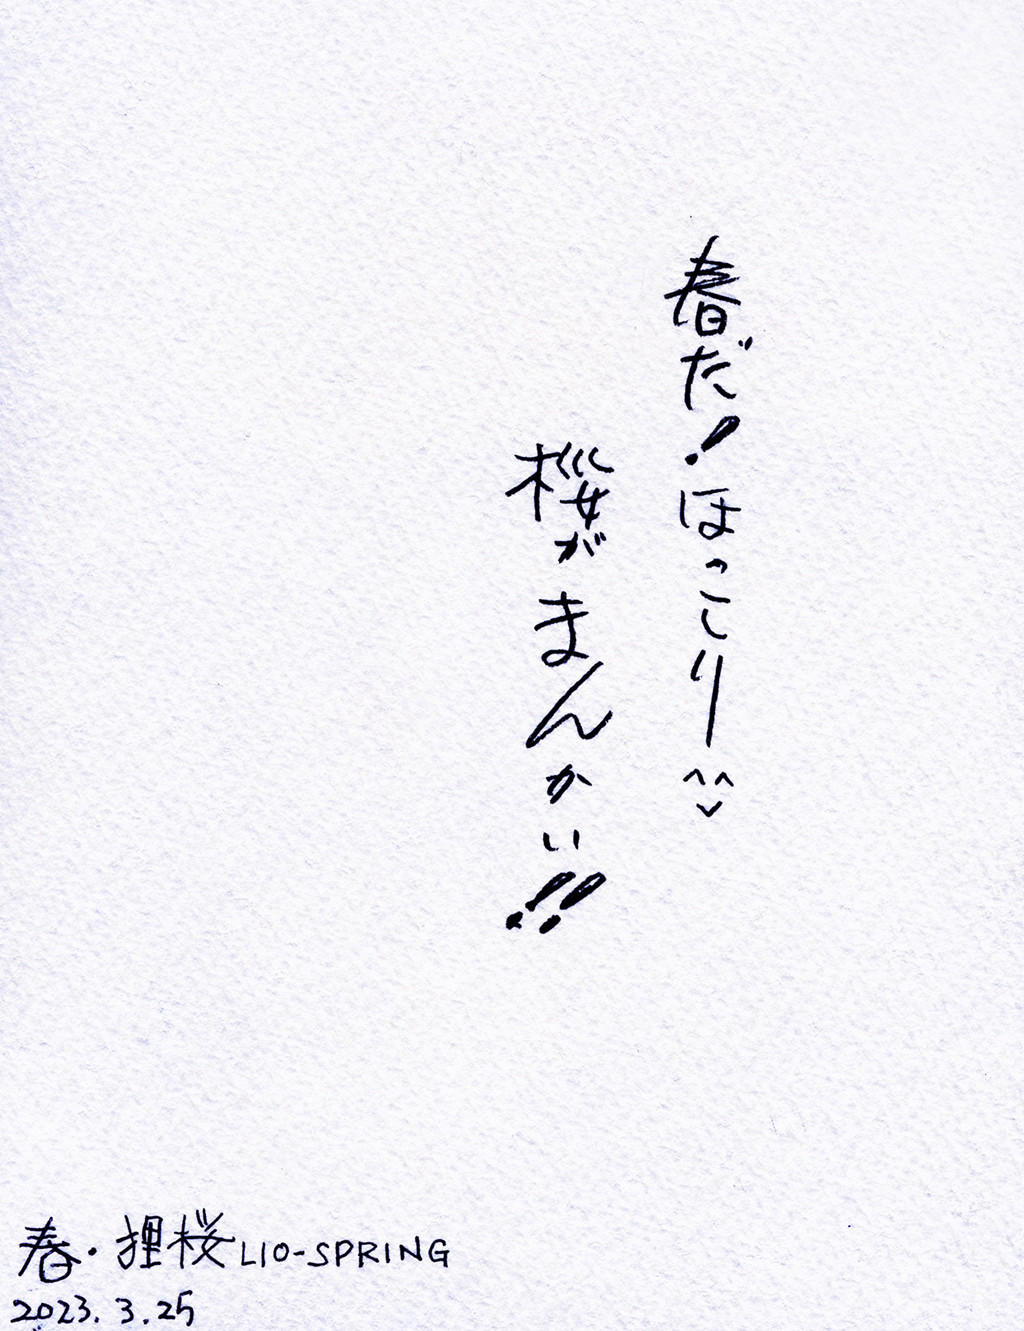 春だ!ほっこりー^^
桜がまんかい!!
春・狸桜LIO-SPRING
2023.3.25